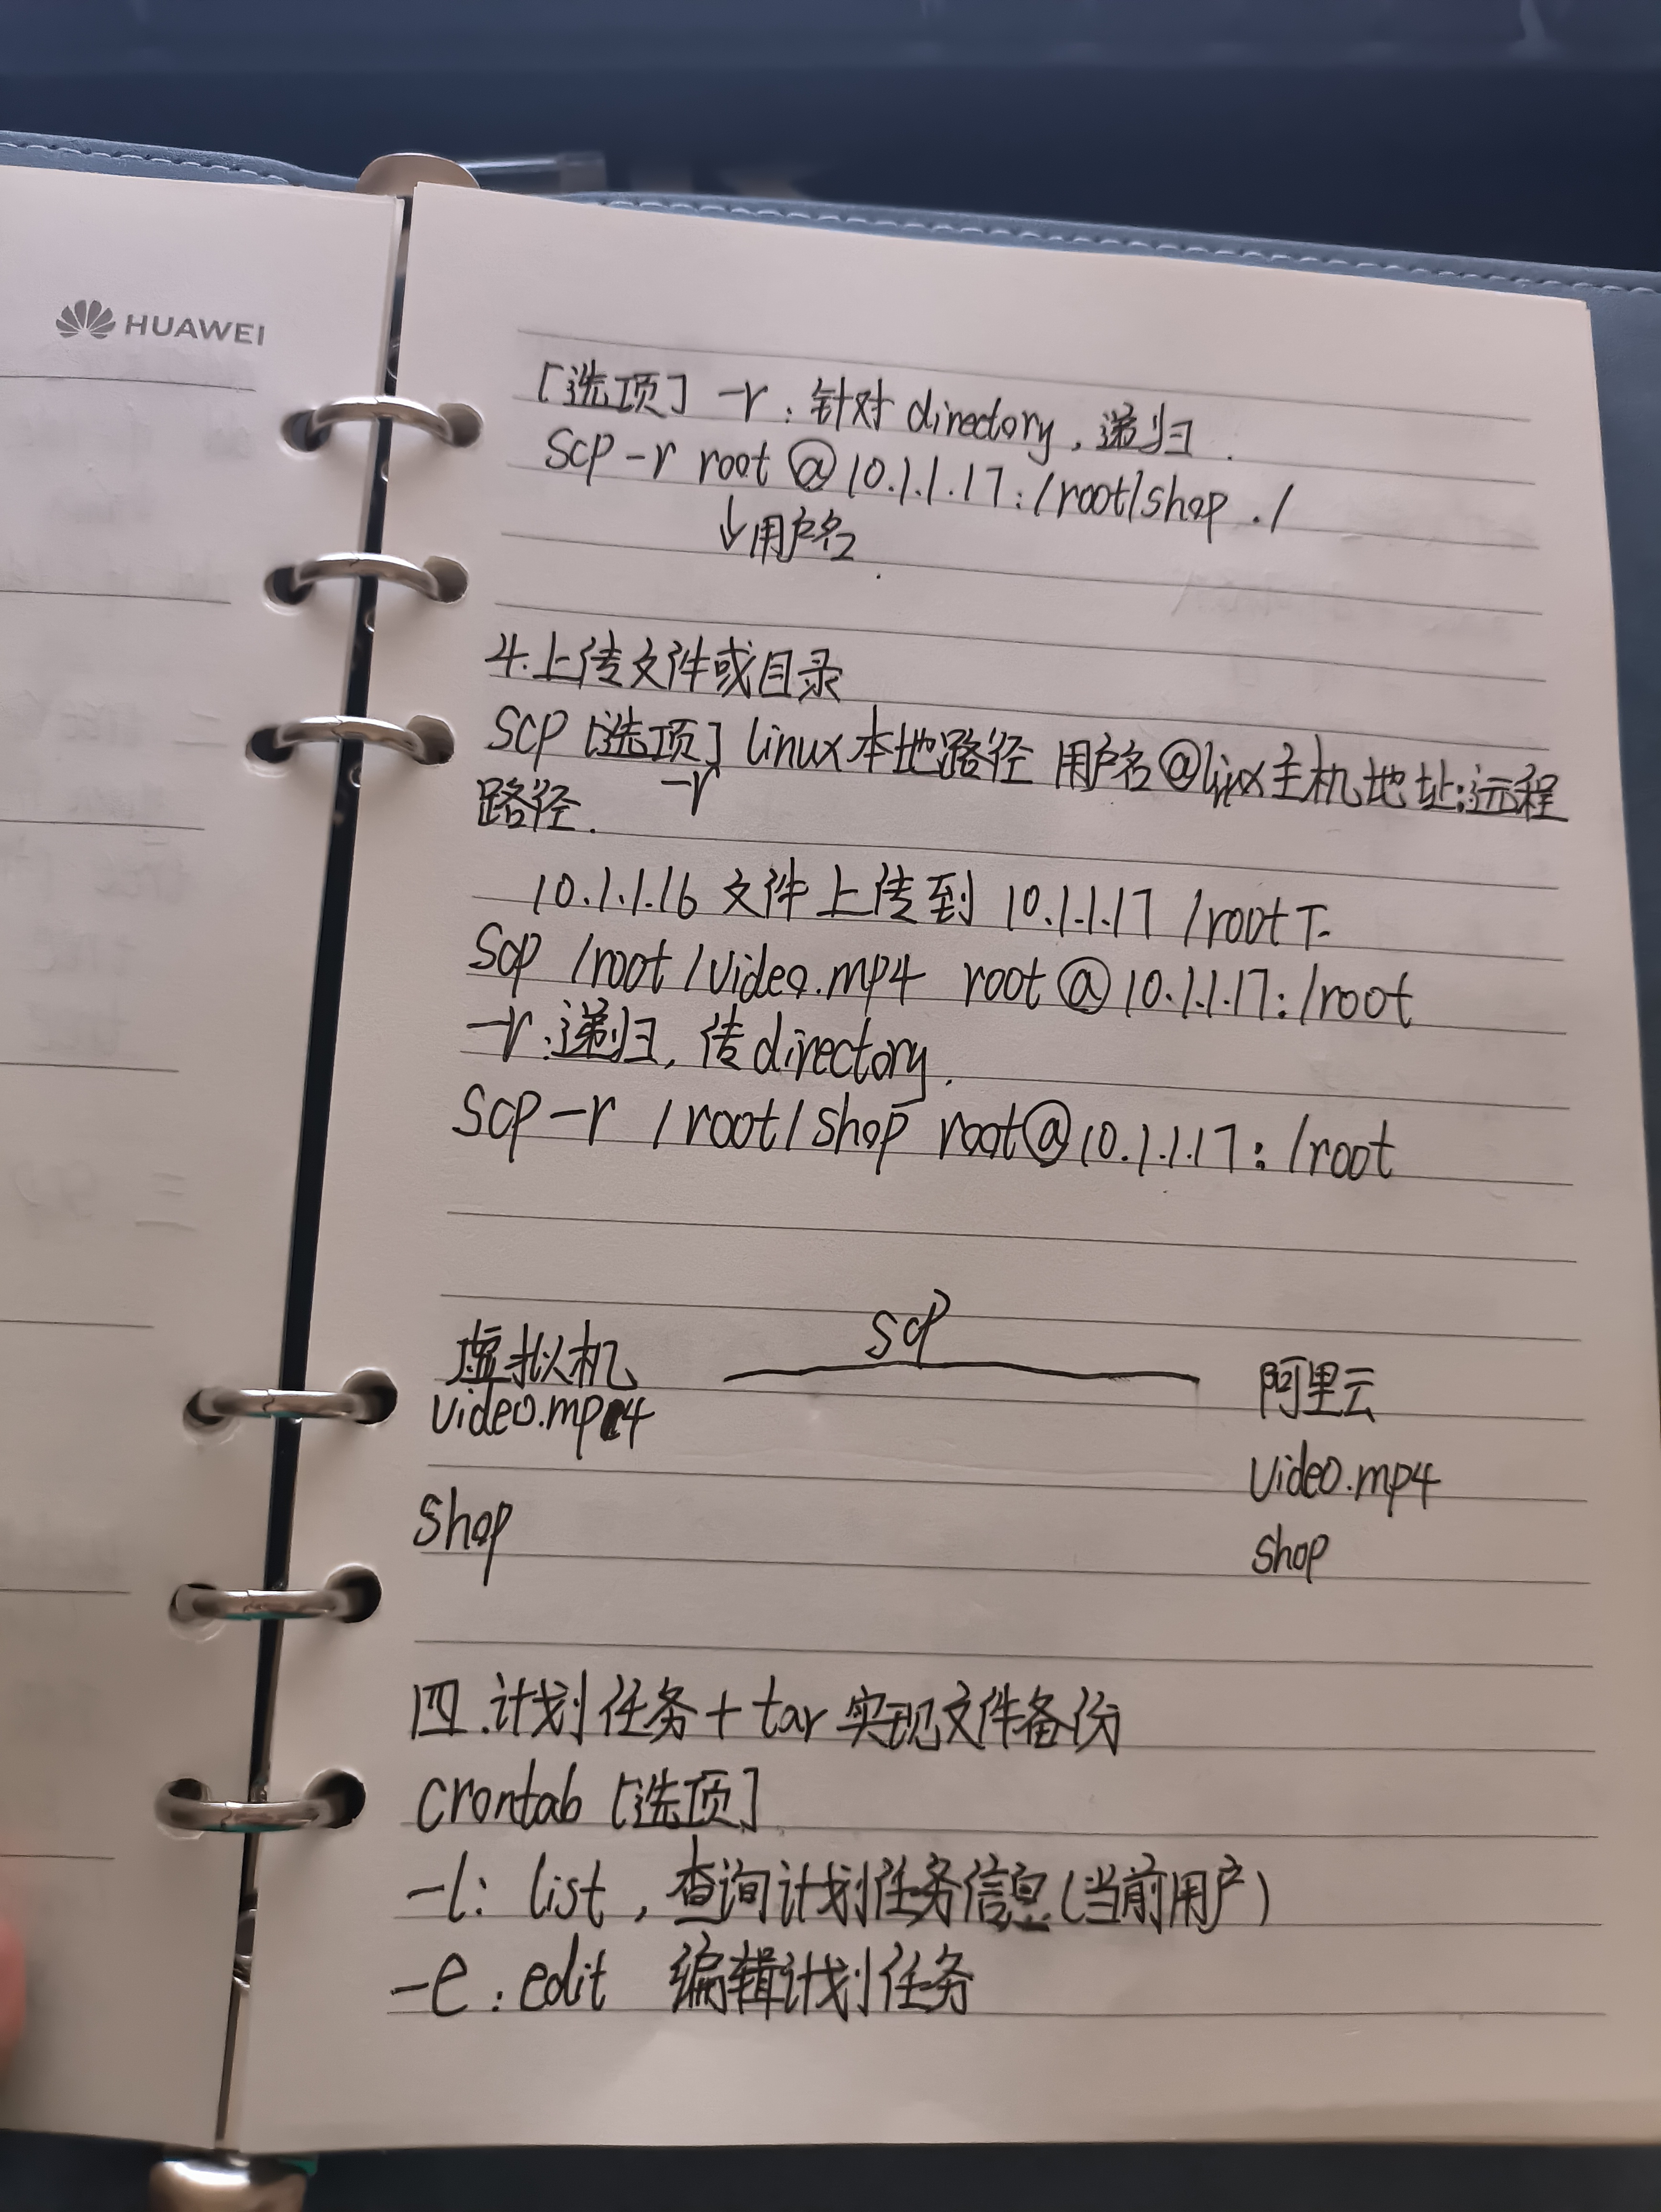 HUAWEI
[选项] -r：针对 directory，递归.
scp -r root@10.1.1.17:/root/shop ./
↓用户名.
4.上传文件或目录
scp [选项] linux本地路径 用户名@linux主机地址:远程
-r
路径.
10.1.1.16 文件上传到 10.1.1.17 /root下.
scp /root/video.mp4 root@10.1.1.17:/root
-r:递归，传directory.
scp -r /root/shop root@10.1.1.17:/root
scp
虚拟机
阿里云
video.mp4
video.mp4
shop
shop
四.计划任务+tar实现文件备份
crontab [选项]
-l: list，查询计划任务信息(当前用户)
-e: edit 编辑计划任务